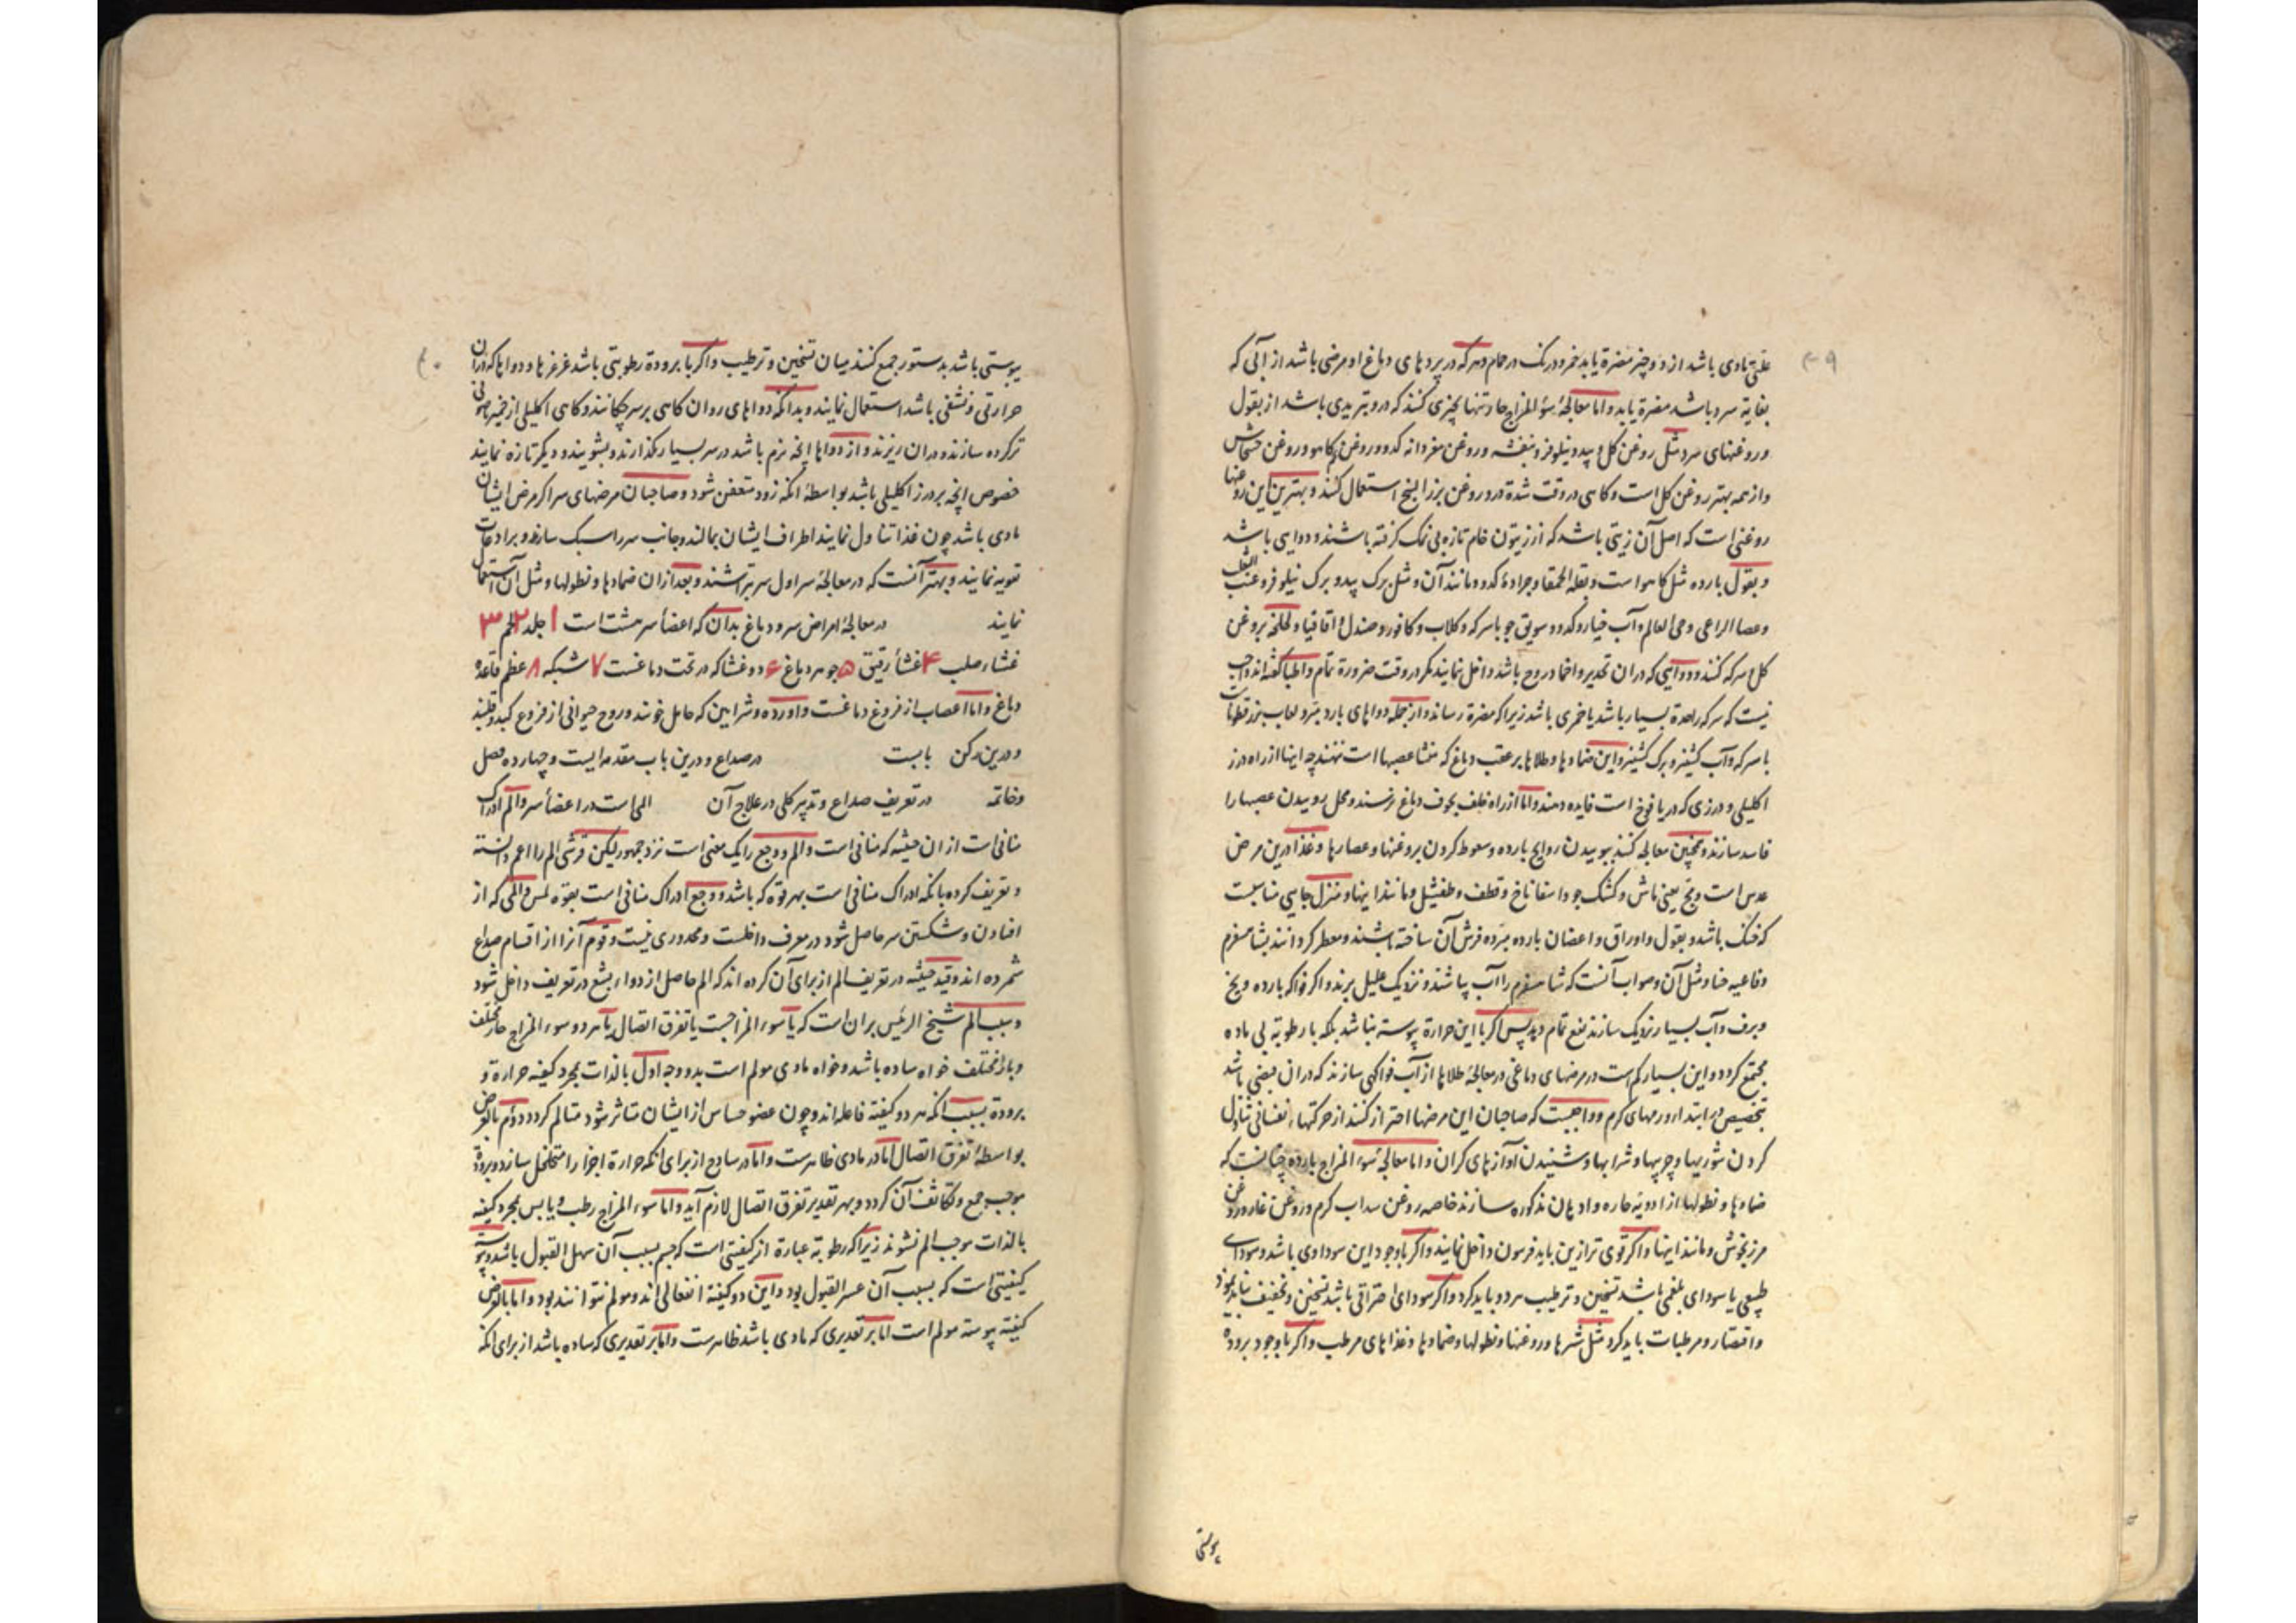 علتی مادی باشد از دو چیز مضرة یابد خمر و درنک در حمام و هرکه در پردهای دماغ او مرضی باشد از آبی که
بغایة سرد باشد مضرة یابد و اما معالجهٔ سؤ المزاج حار تنها بچیزی کنند که درو تبریدی باشد از بقول
و روغنهای سرد مثل روغن کل و بید و نیلوفر و بنفشه و روغن مغز دانه کدو و روغن کاهو و روغن خشخاش
و از همه بهتر روغن کل است و کاهی در وقت شدة درد روغن بزر البنج استعمال کنند و بهترین این روغنها
روغنی است که اصل آن زیتی باشد که از زیتون خام تازه بی نمک کرفته باشند و دوایی باشد
و بقول بارده مثل کاهو است و بقلة الحمقا و جرادهٔ کدو و مانند آن و مثل برک بید و برک نیلوفر و عنب الثعلب
و عصا الراعی و حی العالم و آب خیار و کدو و سویق جو با سرکه و کلاب و کافور و صندل و اقاقیا و لخلخه بروغن
کل و سرکه کنند و دوایی که دران تخدیر و اخماد روح باشد داخل نمایند مکر در وقت ضرورة تمام و اطبا کفته اند واجب
نیست که سرکه را حدة بسیار باشد یا خمری باشد زیرا که مضرة رساند و از جمله دواهای بارد مبرد لعاب بزر قطونا
با سرکه و آب کشنیز و برک کشنیز و این ضمادها و طلاها بر عقب دماغ که منشا عصبها است ننهند چه اینها از راه درز
اکلیلی و درزی که در یافوخ است فایده دهند و اما از راه خلف بجوف دماغ نرسند و محل روییدن عصبها را
فاسد سازند و همچنین معالجه کنند ببوییدن روایح بارده و سعوط کردن بروغنها و عصارها و غذا درین مرض
عدس است و مج یعنی ماش و کشک جو و اسفاناخ و قطف و طفشیل و مانند اینها و منزل جایی مناسبت
که خنک باشد و بقول و اوراق و اغصان بارده مبرده فرش آن ساخته باشند و معطر کردانند بشاهسفرم
و فاغیه حنا و مثل آن و صواب آنست که شاهسفرم را آب پاشند و نزدیک علیل برند و اکر فواکه بارده و یخ
و برف و آب بسیار نزدیک سازند نفع تمام دهد پس اکر با این حرارة یبوسته نباشد بلکه با رطوبة بی ماده
مجتمع کردد و این بسیار کم است در مرضهای دماغی در معالجه طلاها از آب فواکهی سازند که دران قبضی باشد
بتخصیص در ابتداء ورمهای کرم و واجبست که صاحبان این مرضها احتراز کنند از حرکتهاء نفسانی و تناول
کردن شوریها و چربیها و شرابها و شنیدن آوازهای کران و اما معالجهٔ سوء المزاج بارده چنانست که
ضمادها و نطولها از ادویهٔ حاره و ادهان مذکوره سازند خاصه روغن سداب کرم و روغن غار و روغن
مرزنجوش و مانند اینها و اکر قوی تر ازین باید فرسون داخل نمایند و اکر با وجود این سوداوی باشد و سودای
طبیعی یا سودای بلغمی باشد تسخین و ترطیب هر دو باید کرد و اکر سودای احتراقی باشد تسخین و تجفیف نباید نمود
و اقتصار و مرطبات باید کرد مثل شربها و روغنها و نطولها و ضمادها و غذاهای مرطب و اکر با وجود برودة
یبوستی
یبوستی باشد بدستور جمع کنند میان تسخین و ترطیب و اکر با برودة رطوبتی باشد غرغرها و دواها که دران
حرارتی و نشفی باشد استعمال نمایند و بدانکه دواهای روان کاهی بر سر چکانند و کاهی اکلیلی از خمیر یا صوفی
تر کرده سازند و دران ریزند و از دواها آنچه نرم باشد در سر بسیار نکذارند و بشویند و دیکر تازه نمایند
خصوص آنچه بر درز اکلیلی باشد بواسطهٔ آنکه زود متعفن شود و صاحبان مرضهای سر اکر مرض ایشان
مادی باشد چون غذا تناول نمایند اطراف ایشان بمالند و جانب سر را سبک سازند و برادعات
تقویه نمایند و بهتر آنست که در معالجهٔ سر اول سر بتراشند و بعد ازان ضمادها و نطولها و مثل آن استعمال
نمایند در معالجهٔ امراض سر و دماغ بدان که اعضاء سر هشت است ۱ جلد ۲ لحم ۳
غشاء صلب ۴ غشاء رقیق ۵ جوهر دماغ ۶ دو غشا که در تحت دماغست ۷ شبکه ۸ عظم قاعدهٔ
دماغ و اما اعصاب از فروع دماغست و اورده و شرایین که حامل خونند و روح حیوانی از فروع کبد و قلبند
و درین رکن بابست در صداع و درین باب مقدمه ایست و چهارده فصل
و خاتمه در تعریف صداع و تدبیر کلی در علاج آن المی است در اعضاء سر و الم ادراک
منافی است از ان حیثیه که منافی است و الم و وجع را یک معنی است نزد جمهور لیکن قرشی الم را اعم دانسته
و تعریف کرده بانکه ادراک منافی است بهر قوه که باشد و وجع ادراک منافی است بقوه لمس و المی که از
افتادن و شکستن سر حاصل شود در معرف داخلست و محدوری نیست و قوم آنرا از اقسام صداع
شمرده اند و قید حیثیه در تعریف الم از برای آن کرده اند که الم حاصل از دواء بشع در تعریف داخل شود
و سبب الم شیخ الرئیس بران است که یا سوء المزاجست یا تفرق اتصال یا هر دو و سوء المزاج حار مختلف
و بارد مختلف خواه ساده باشد و خواه مادی مولم است بدو وجه اول بالذات بمجرد کیفیه حرارة و
برودة بسبب آنکه هر دو کیفیه فاعله اند و چون عضو حساس از ایشان متاثر شود متالم کردد دوم بالعرض
بواسطهٔ تفرق اتصال اما در مادی ظاهرست و اما در ساذج از برای آنکه حرارة اجزا را متخلخل سازد و برودة
موجب جمع و تکاثف آن کردد و بهر تقدیر تفرق اتصال لازم آید و اما سوء المزاج رطب و یابس بمجرد کیفیه
بالذات موجب الم نشوند زیرا که رطوبة عبارة از کیفیتی است که جسم بسبب آن سهل القبول باشد و یبوسة
کیفیتی است که بسبب آن عسر القبول بود و این دو کیفیة انفعالی اند و مولم نتوانند بود و اما بالعرض
کیفیة یبوسته مولم است اما بر تقدیری که مادی باشد ظاهرست و اما بر تقدیری که ساده باشد از برای آنکه